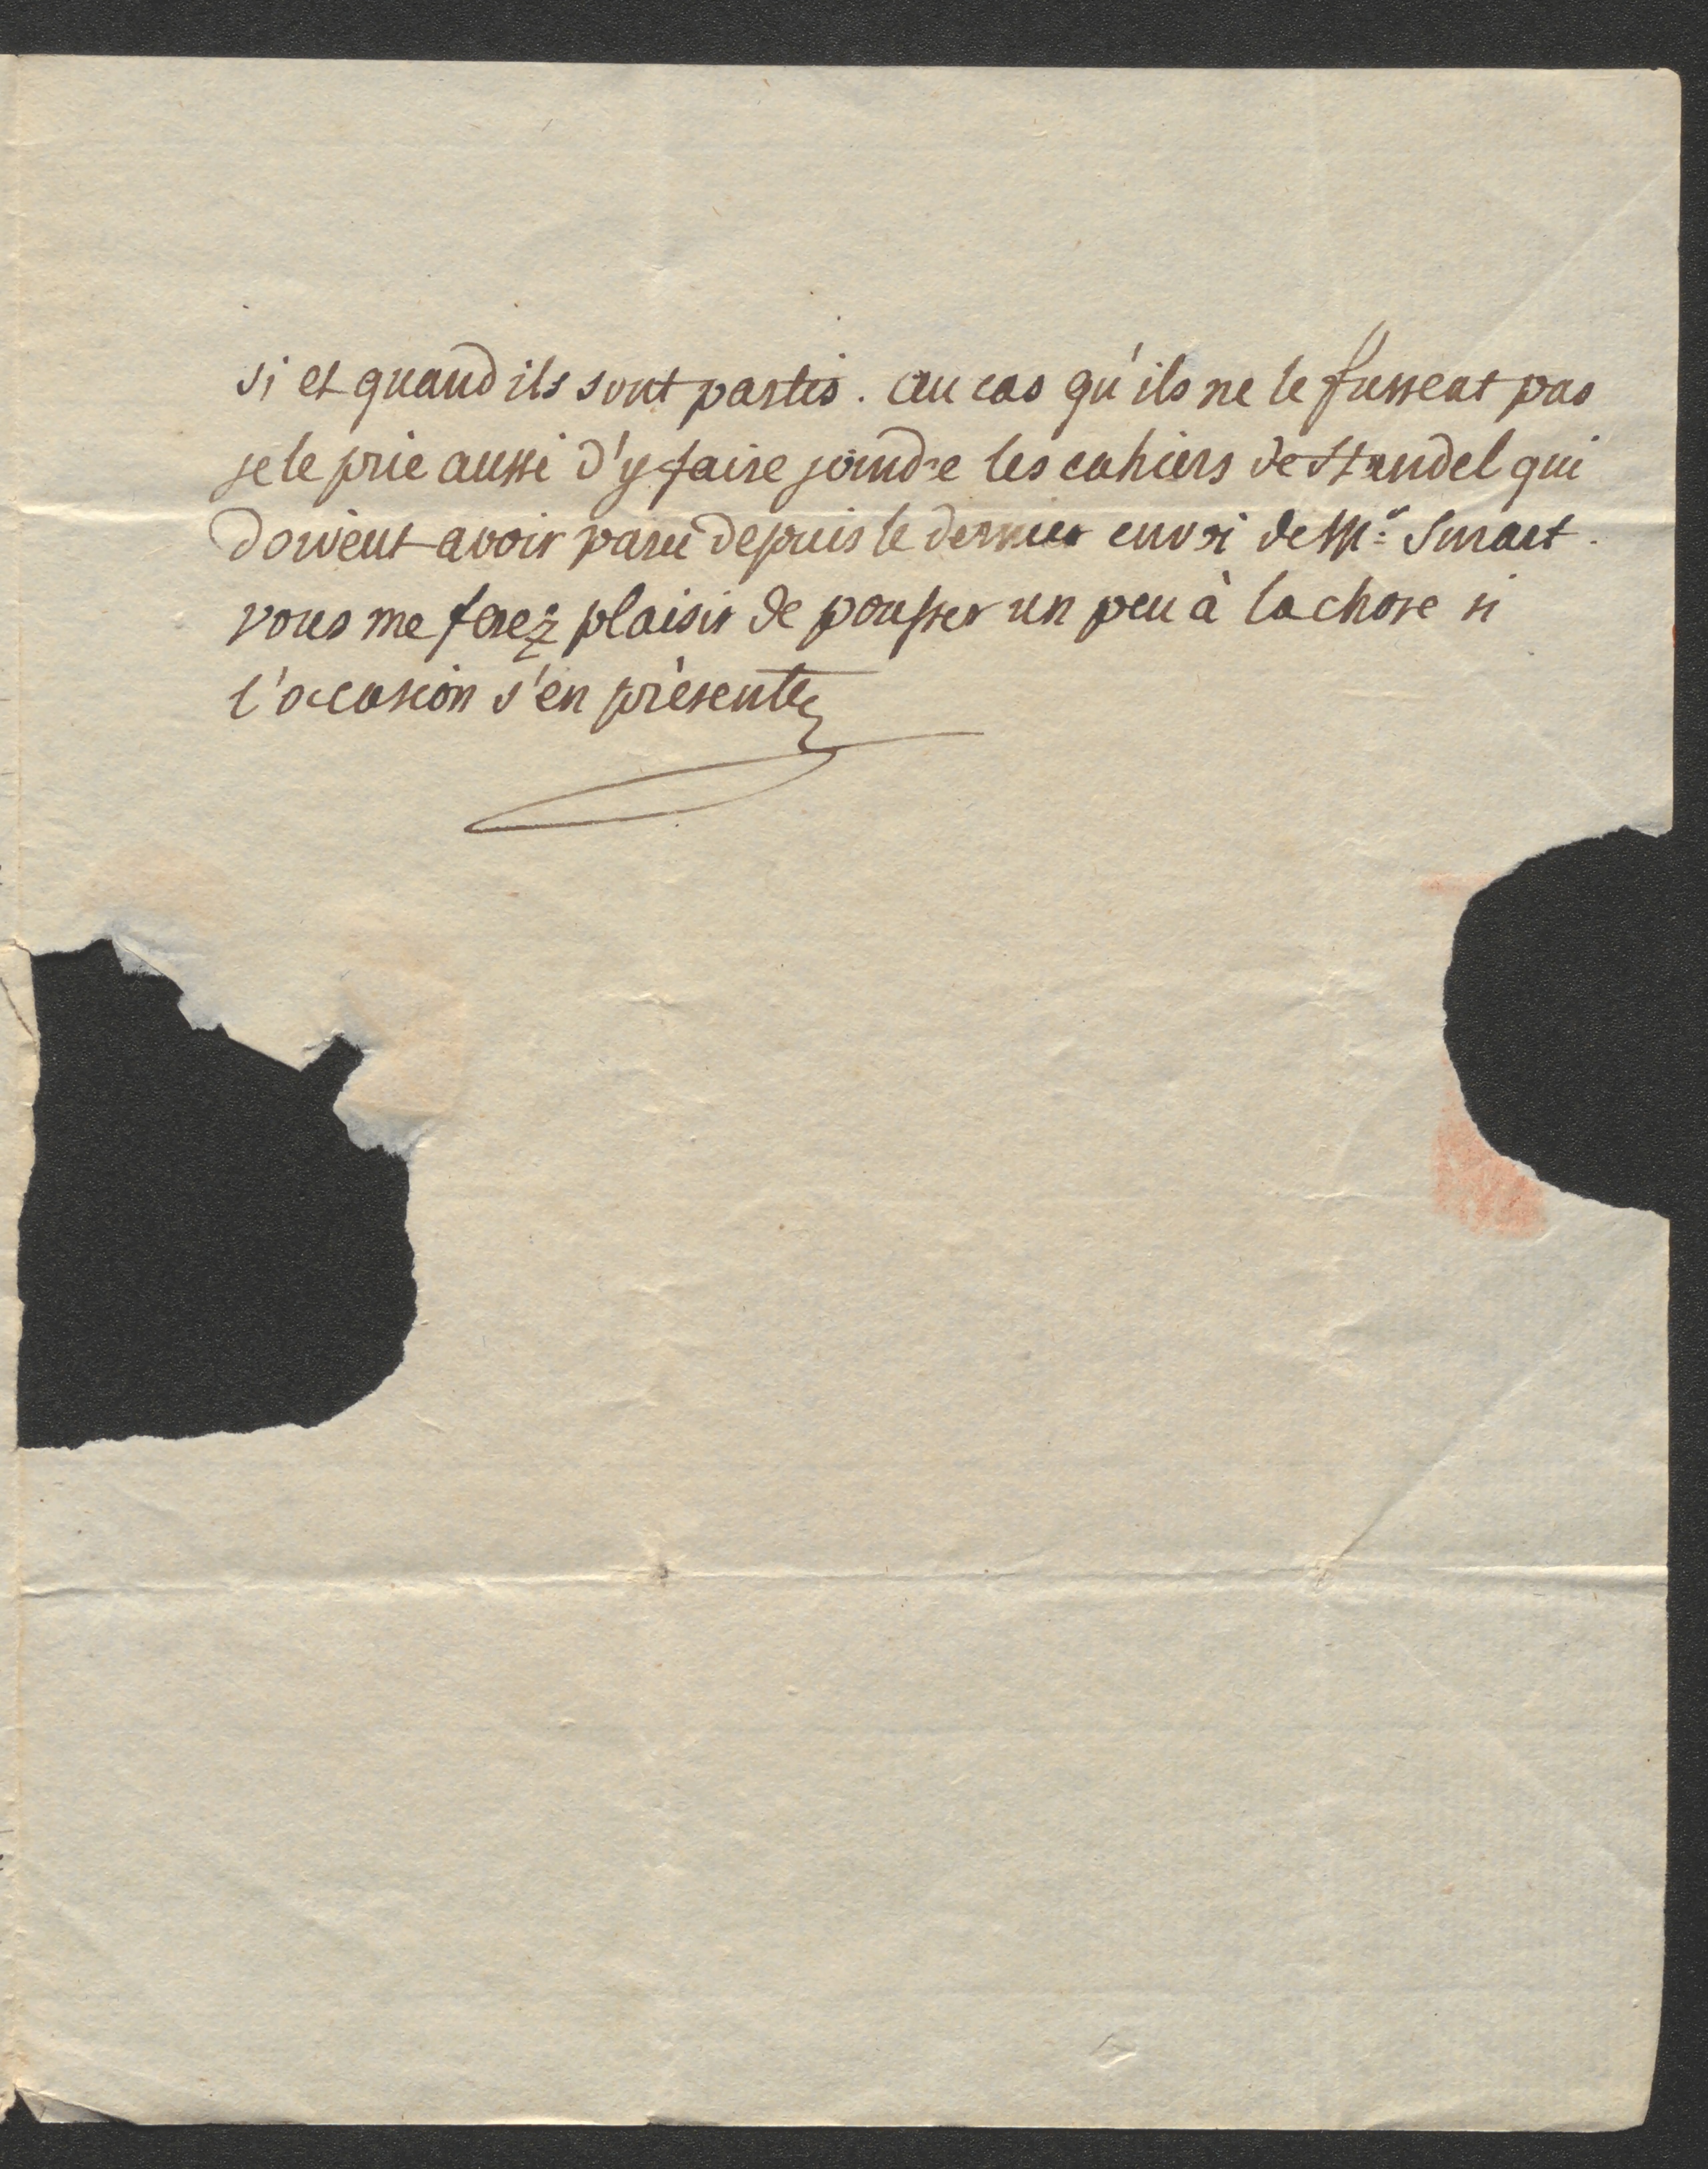 si et quand ils sont partis. au cas qu'ils ne le fussent pas
je le prie aussi d'y faire joindre les cahiers de Handel qui
doivent avoir paru depuis le dernier envoi de Mr. Smart.
vous me ferez plaisir de pousser un peu à la chose si
l'occasion s'en présente